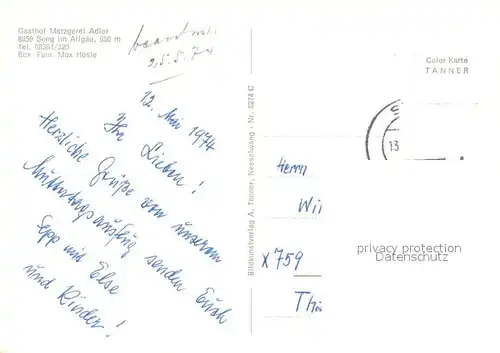 Gasthof Metzgerei Adler
8959 Seeg im Allgäu, 850 m
Tel. 08364/320
Bes. Fam. Max Hösle
beantw.
25.5.74
12. Mai 1974
Ihr Lieben!
Herzliche Grüße von unserem
Muttertagsausflug senden Euch
Sepp und Else
und Kinder!
Bildkunstverlag A. Tanner, Nesselwang - Nr. 5274 C
Color Karte
TANNER
13.
Herrn
Wil
X 759
privacy protection
Datenschutz